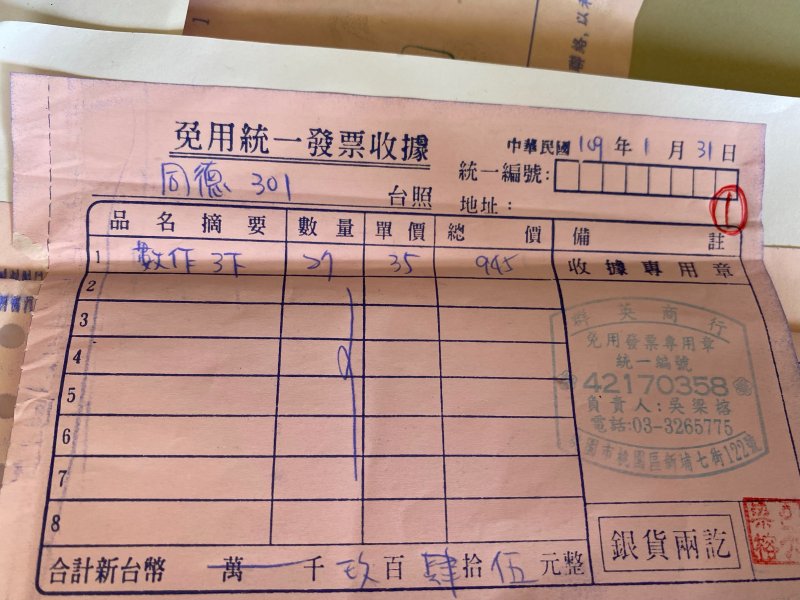 免用統一發票收據
中華民國109年1月31日
同德 301 台照
統一編號:
地址:
1
品名摘要 數量 單價 總價 備註
1 數作3下 27 35 945 收據專用章
2
3
4
5
6
7
8
群英商行
免用發票專用章
統一編號
42170358
負責人:吳梁榕
電話:03-3265775
桃園市桃園區新埔七街122號
銀貨兩訖
合計新台幣 萬 千 玖 百 肆 拾 伍 元整